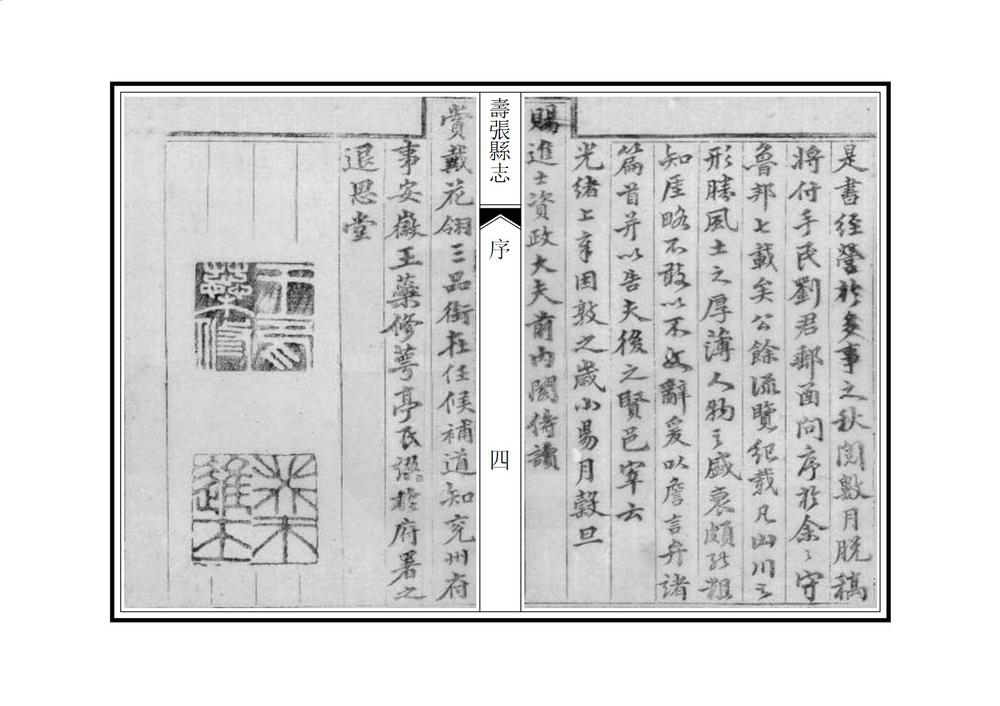 是書經營於多事之秋閱數月脫稿
將付手民劉君郵函問序於余余守
魯邦七載矣公餘流覽紀載凡山川之
形勝風土之厚薄人物之盛衰頗能粗
知厓略不敢以不文辭爰以詹言弁諸
篇首并以告夫後之賢邑宰云
光緒上章困敦之歲小陽月穀旦
賜進士資政大夫前內閣侍讀
壽張縣志
序
四
賞戴花翎三品銜在任候補道知兗州府
事安徽王蘂修萼亭氏譔於府署之
退思堂
蘂修
進士